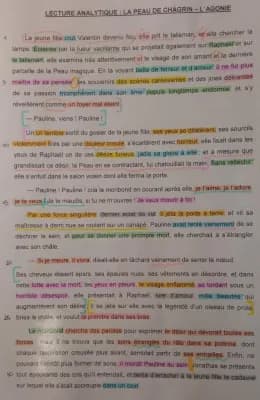 LECTURE ANALYTIQUE : LA PEAU DE CHAGRIN – L'AGONIE
La jeune fille crut Valentin devenu fou, elle prit le talisman, et alla chercher la
lampe. Éclairée par la lueur vacillante qui se projetait également sur Raphaël et sur
le talisman, elle examina très attentivement et le visage de son amant et la dernière
parcelle de la Peau magique. En la voyant belle de terreur et d'amour, il ne fut plus
maître de sa pensée : les souvenirs des scènes caressantes et des joies délirantes
de sa passion triomphèrent dans son âme depuis longtemps endormie, et s'y
réveillèrent comme un foyer mal éteint.
— Pauline, viens ! Pauline !
Un cri terrible sortit du gosier de la jeune fille, ses yeux se dilatèrent, ses sourcils
violemment tirés par une douleur inouïe, s'écartèrent avec horreur, elle lisait dans les
yeux de Raphaël un de ces désirs furieux, jadis sa gloire à elle ; et à mesure que
grandissait ce désir, la Peau en se contractant, lui chatouillait la main. Sans réfléchir,
elle s'enfuit dans le salon voisin dont elle ferma la porte.
— Pauline ! Pauline ! cria le moribond en courant après elle, je t'aime, je t'adore,
je te veux ! Je te maudis, si tu ne m'ouvres ! Je veux mourir à toi !
Par une force singulière, dernier éclat de vie, il jeta la porte à terre, et vit sa
maîtresse à demi nue se roulant sur un canapé. Pauline avait tenté vainement de se
déchirer le sein, et pour se donner une prompte mort, elle cherchait à s'étrangler
avec son châle.
— Si je meurs, il vivra, disait-elle en tâchant vainement de serrer le nœud.
Ses cheveux étaient épars, ses épaules nues, ses vêtements en désordre, et dans
cette lutte avec la mort, les yeux en pleurs, le visage enflammé, se tordant sous un
horrible désespoir, elle présentait à Raphaël, ivre d'amour, mille beautés qui
augmentèrent son délire ; il se jeta sur elle avec la légèreté d'un oiseau de proie,
brisa le châle, et voulut la prendre dans ses bras.
Le moribond chercha des paroles pour exprimer le désir qui dévorait toutes ses
forces ; mais il ne trouva que les sons étranglés du râle dans sa poitrine, dont
chaque respiration creusée plus avant, semblait partir de ses entrailles. Enfin, ne
pouvant bientôt plus former de sons, il mordit Pauline au sein. Jonathas se présenta
tout épouvanté des cris qu'il entendait, et tenta d'arracher à la jeune fille le cadavre
sur lequel elle s'était accroupie dans un coin.